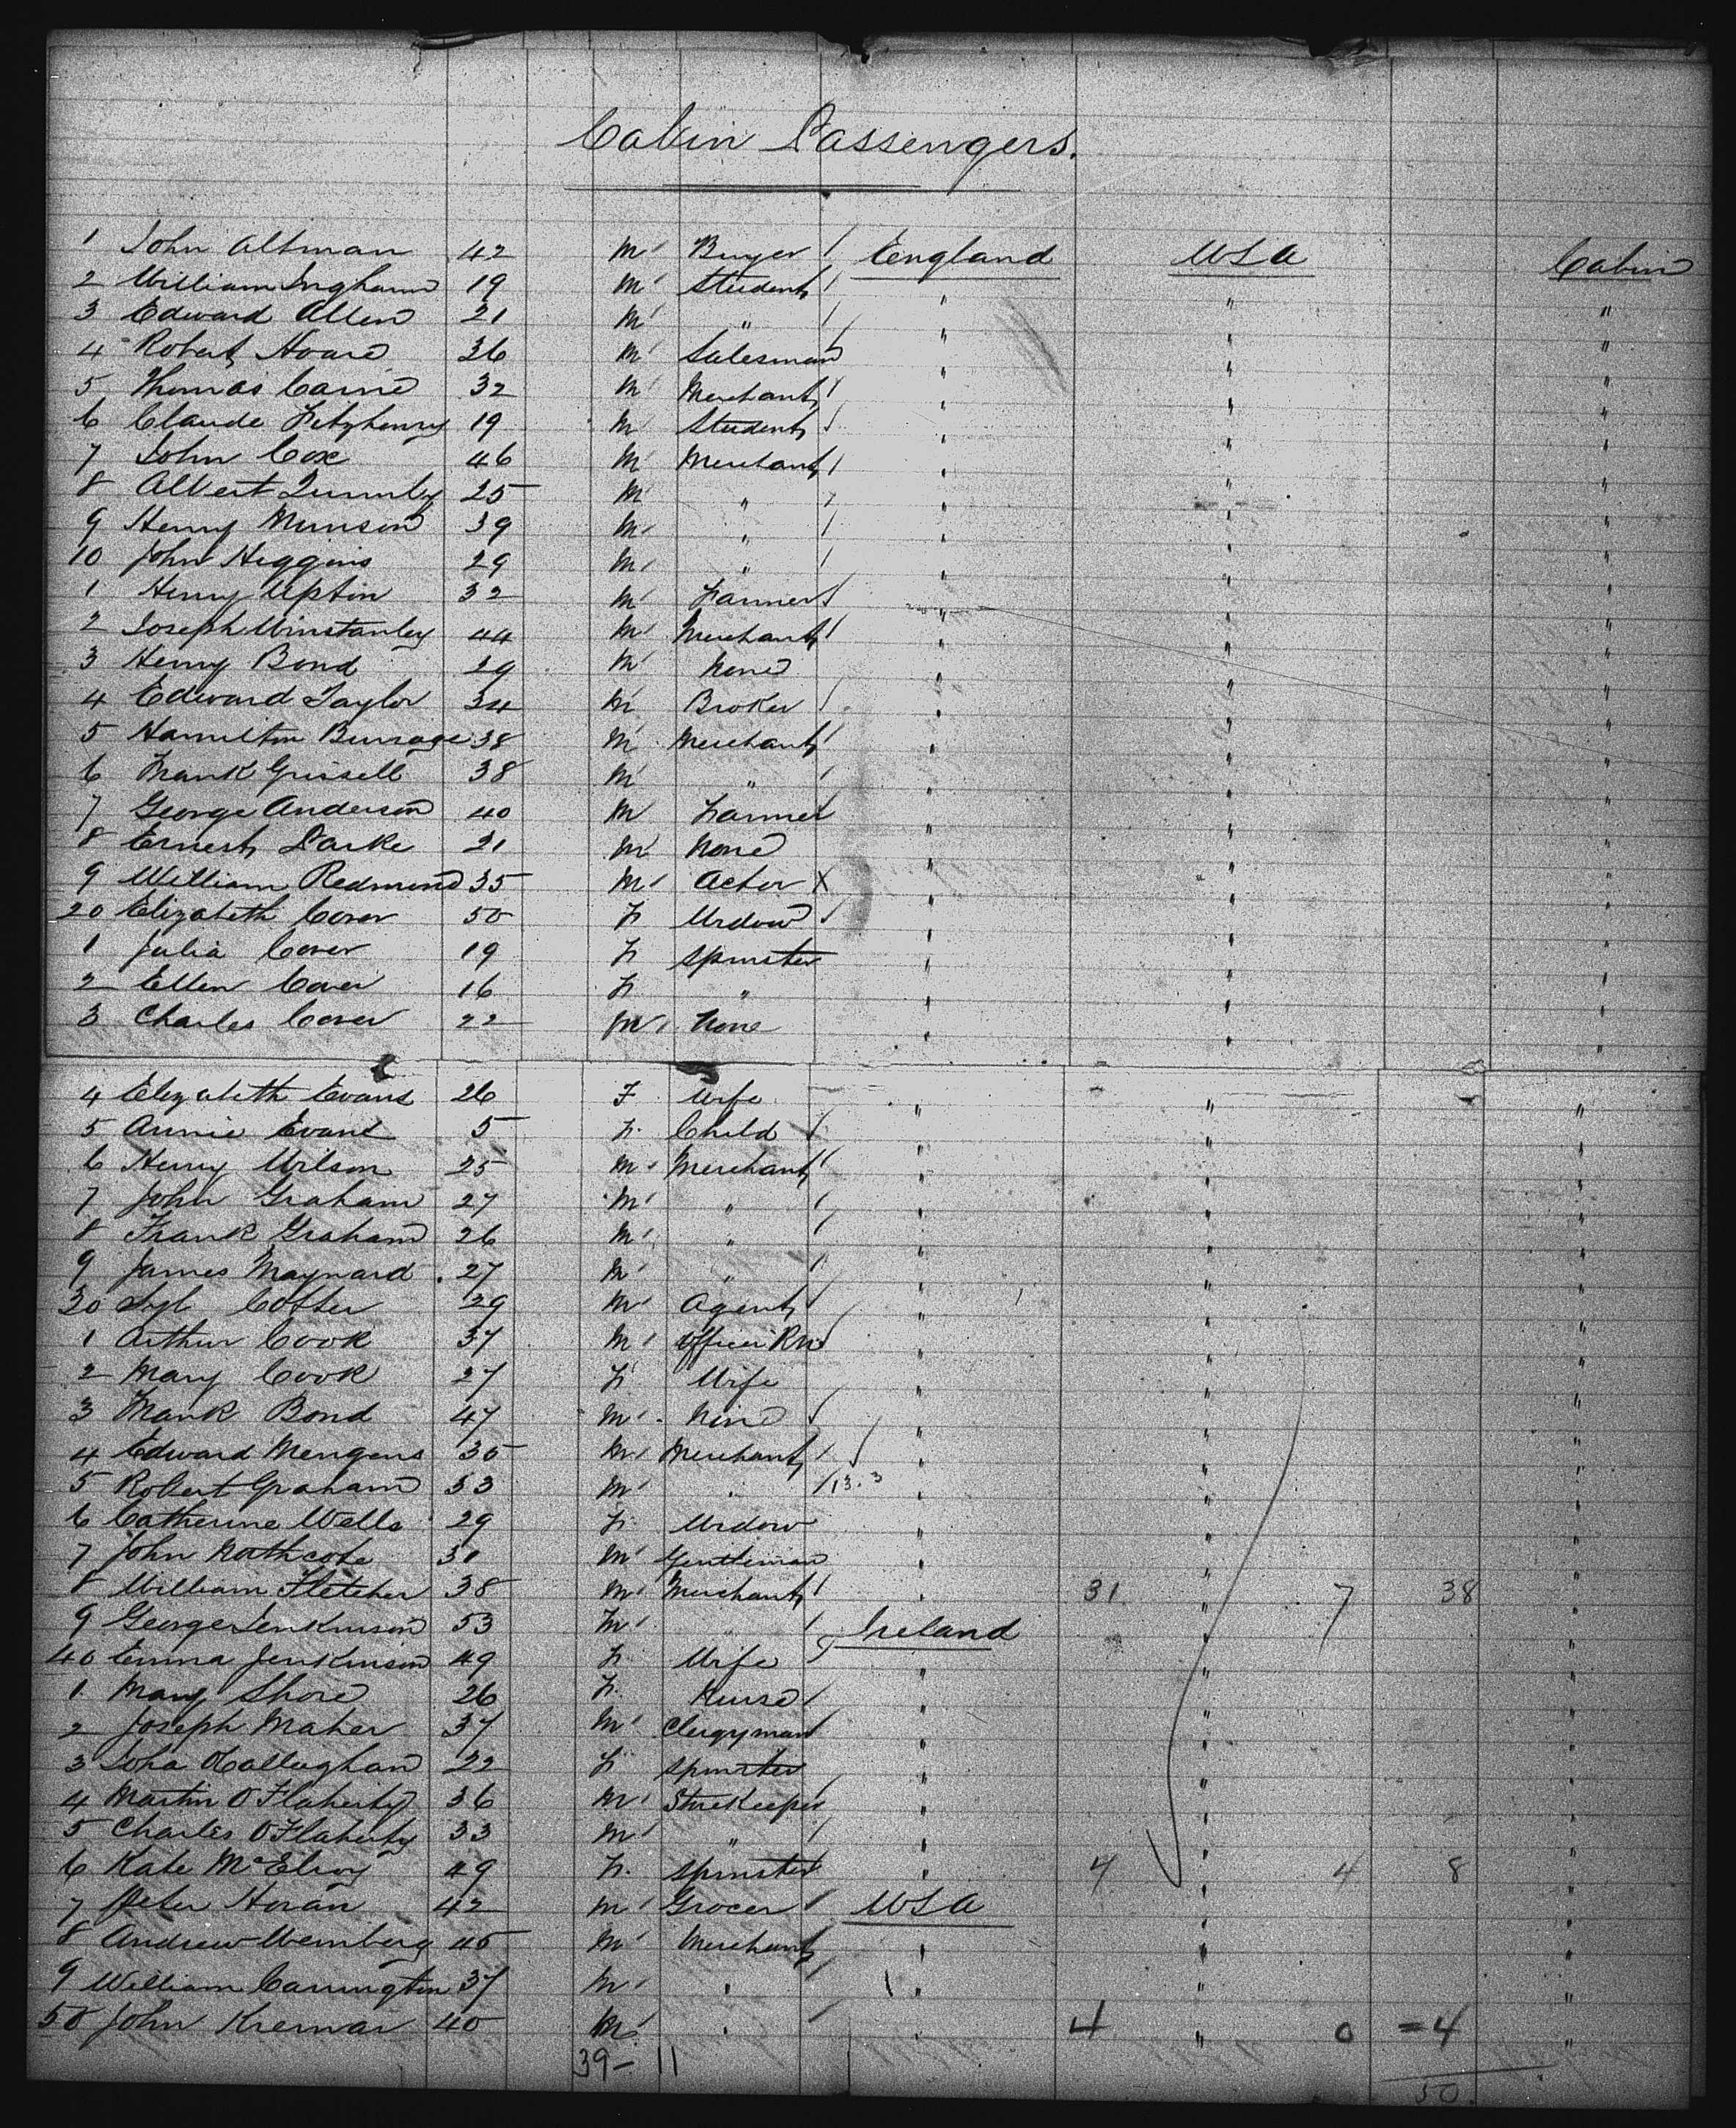 Cabin Passengers.
1 John Altman 42 M Buyer England USA Cabin
2 William Ingham 19 M Student " " "
3 Edward Allen 21 M " " " "
4 Robert Hoare 36 M Salesman " " "
5 Thomas Caine 32 M Merchant " " "
6 Claude Fitzhenry 19 M Student " " "
7 John Cox 46 M Merchant " " "
8 Albert 25 M " " " "
9 Henry Munson 39 M " " " "
10 John Higgins 29 M " " " "
1 Henry Uptin 32 M Farmer " " "
2 Joseph Winstanley 44 M Merchant " " "
3 Henry Bond 29 M None " " "
4 Edward Taylor 34 M Broker " " "
5 Hamilton 38 M Merchant " " "
6 Frank Grissell 38 M " " " "
7 George Anderson 40 M Farmer " " "
8 Ernest Parke 21 M None " " "
9 William Redmond 35 M Actor X " " "
20 Elizabeth Cover 50 F Widow " " "
1 Julia Cover 19 F Spinster " " "
2 Ellen Cover 16 F " " " "
3 Charles Cover 22 M None " " "
4 Elizabeth Evans 26 F Wife " " "
5 Annie Evans 5 F Child " " "
6 Henry Wilson 25 M Merchant " " "
7 John Graham 27 M " " " "
8 Frank Graham 26 M " " " "
9 James Maynard 27 M " " " "
30 Cotter 29 M Agent " " "
1 Arthur Cook 37 M Officer RN " " "
2 Mary Cook 27 F Wife " " "
3 Frank Bond 47 M " " "
4 Edward Mengens M Merchant " " "
5 Robert Graham 53 M " 13.3 " " "
6 Catherine Wells 29 F Widow " " "
7 John 31 M Gentleman " " "
8 William Fletcher 38 M Merchant " 31 " 7 38 "
9 George Jenkinson 53 M " Ireland " "
40 Emma Jenkinson 49 F Wife " " "
1 Mary Shore 26 F Nurse " " "
2 Joseph Maher 37 M Clergyman " " "
3 OCallaghan 22 F Spinster " " "
4 Martin O'Flaherty 36 M Storekeeper " " "
5 Charles O'Flaherty 33 M " " " "
6 Kate McElroy 49 F Spinster " 4 " 4 8 "
7 Peter Horan 42 M Grocer USA " "
8 Andrew Wemberg 45 M Merchant " " "
9 William Carrington 37 M " " " "
50 John Kremar 40 M " " 4 " 0 = 4 "
39 - 11 50